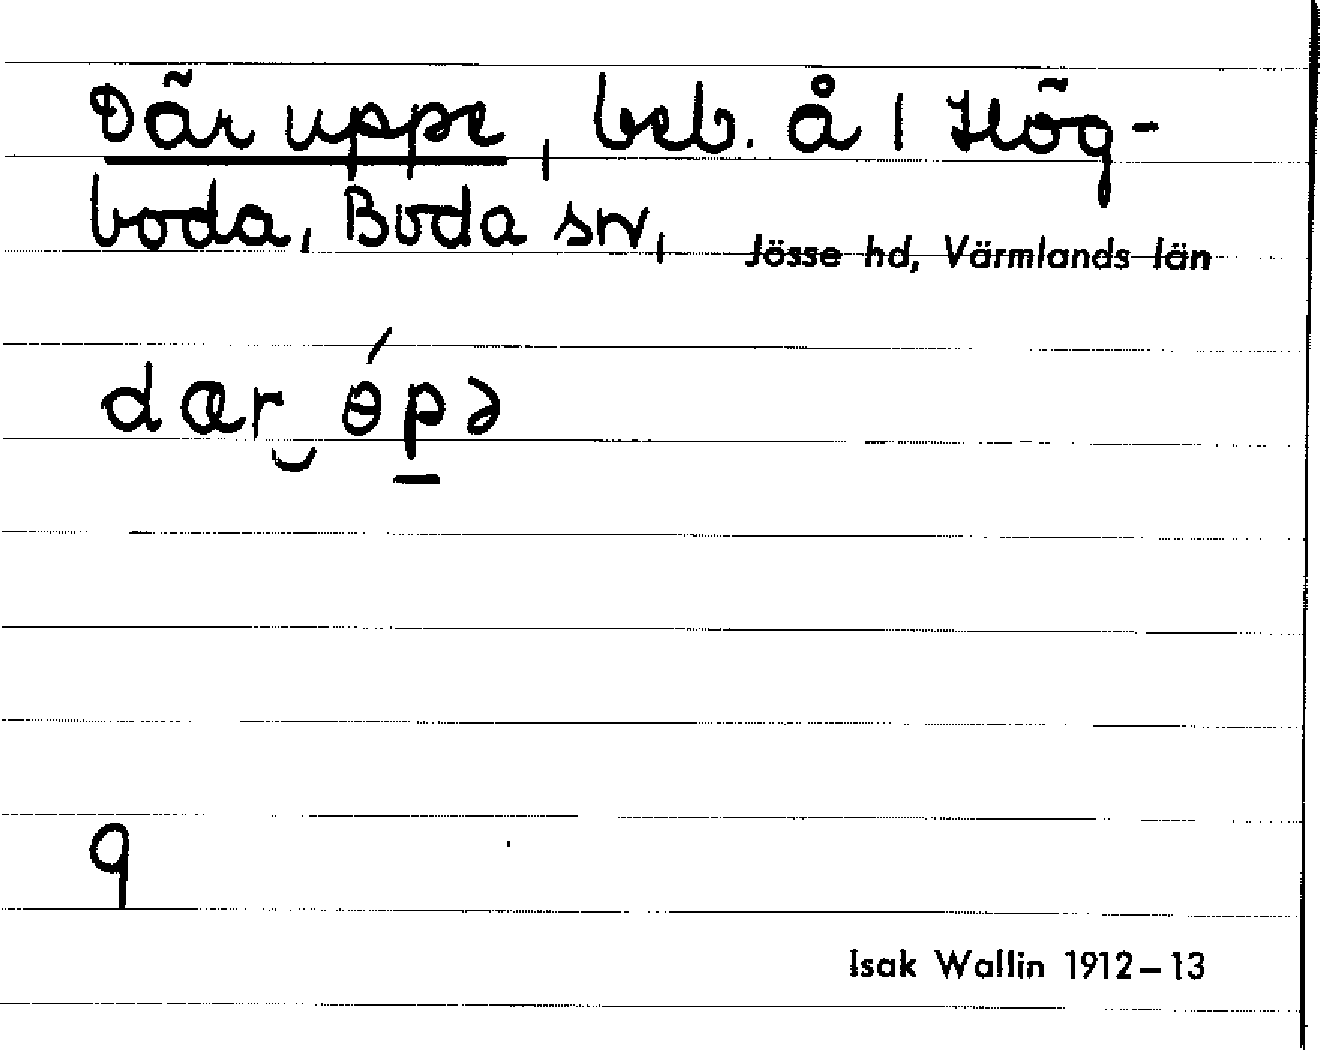 Där uppe, beb. å 1 Hög-
boda, Boda sn, Jösse hd, Värmlands län
dær‿ɵ́pə
9
Isak Wallin 1912–13